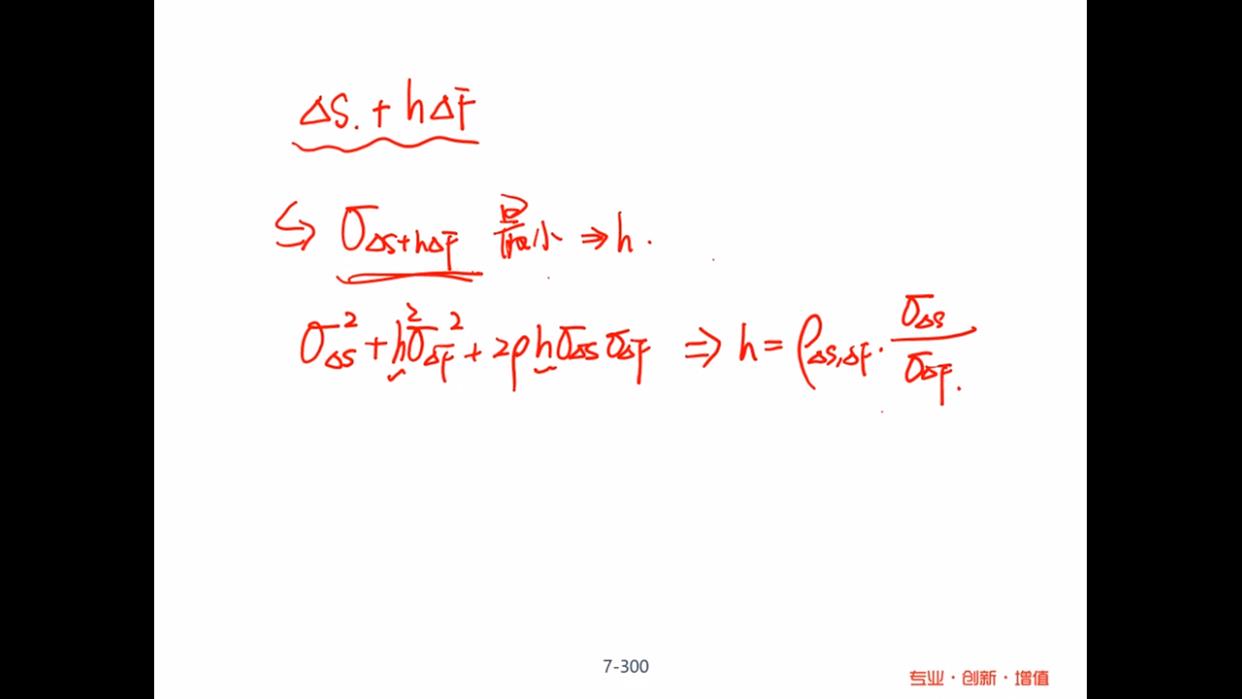 ΔS. + hΔF
⇒ σ_{ΔS+hΔF} 最小 ⇒ h.
σ_{ΔS}² + h²σ_{ΔF}² + 2ρhσ_{ΔS}σ_{ΔF} ⇒ h = ρ_{ΔS,ΔF} · σ_{ΔS}/σ_{ΔF}.
7-300
专业·创新·增值